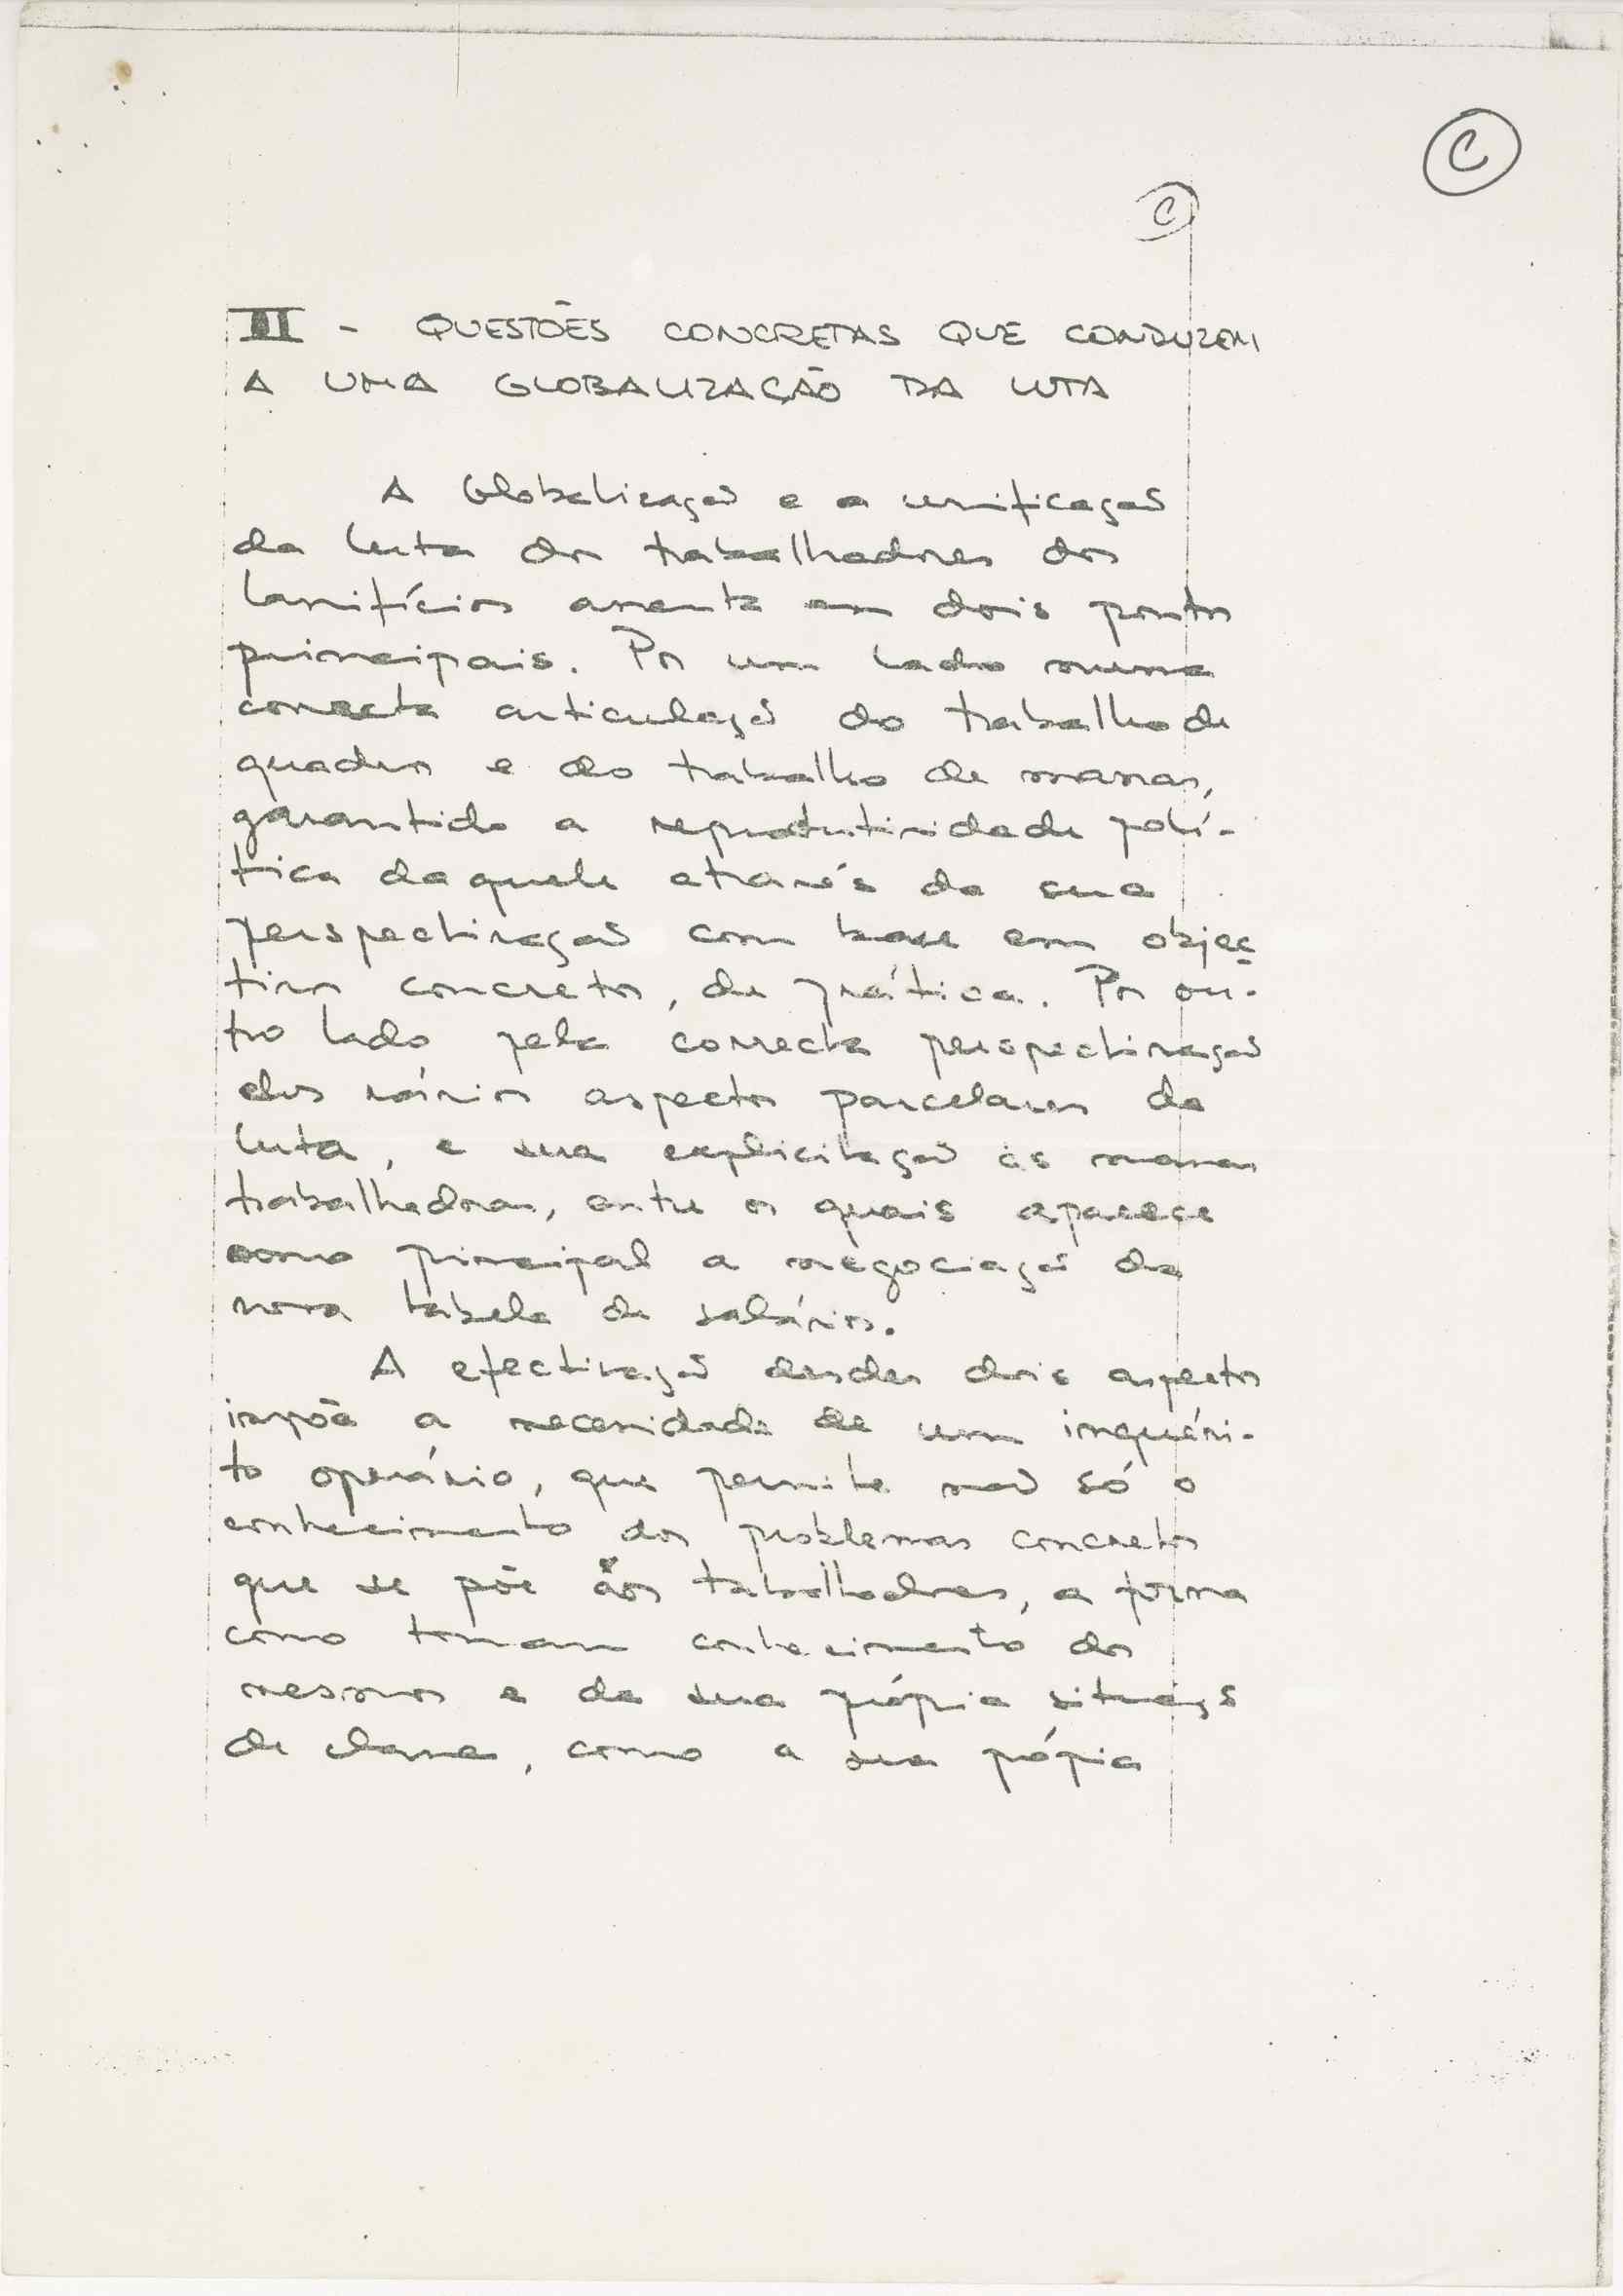 C
C
III - QUESTÕES CONCRETAS QUE CONDUZEM
A UMA GLOBALIZAÇÃO DA LUTA
A Globalização e a unificação
da luta dos trabalhadores dos
lanifícios assenta em dois pontos
principais. Por um lado numa
correcta articulação do trabalho de
quadros e do trabalho de massas,
garantido a reprodutividade polí-
tica daquele através da sua
perspectivação com base em objec
tivos concretos, de prática. Por ou-
tro lado pela correcta perspectivação
dos vários aspectos parcelares da
luta, e sua explicitação às massas
trabalhadoras, entre os quais aparece
como principal a negociação da
nova tabela de salários.
A efectivação desdes dois aspectos
impõe a necessidade de um inquéri-
to operário, que permite não só o
conhecimento dos problemas concretos
que se põe aos trabalhadores, a forma
como tomam conhecimento dos
mesmos e da sua própria situação
de classe, como a sua própia